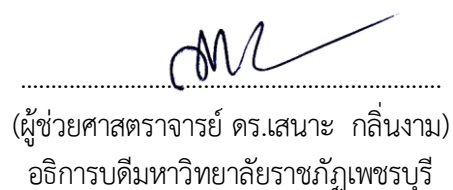 (ผู้ช่วยศาสตราจารย์ ดร.เสนาะ กลิ่นงาม)
อธิการบดีมหาวิทยาลัยราชภัฏเพชรบุรี